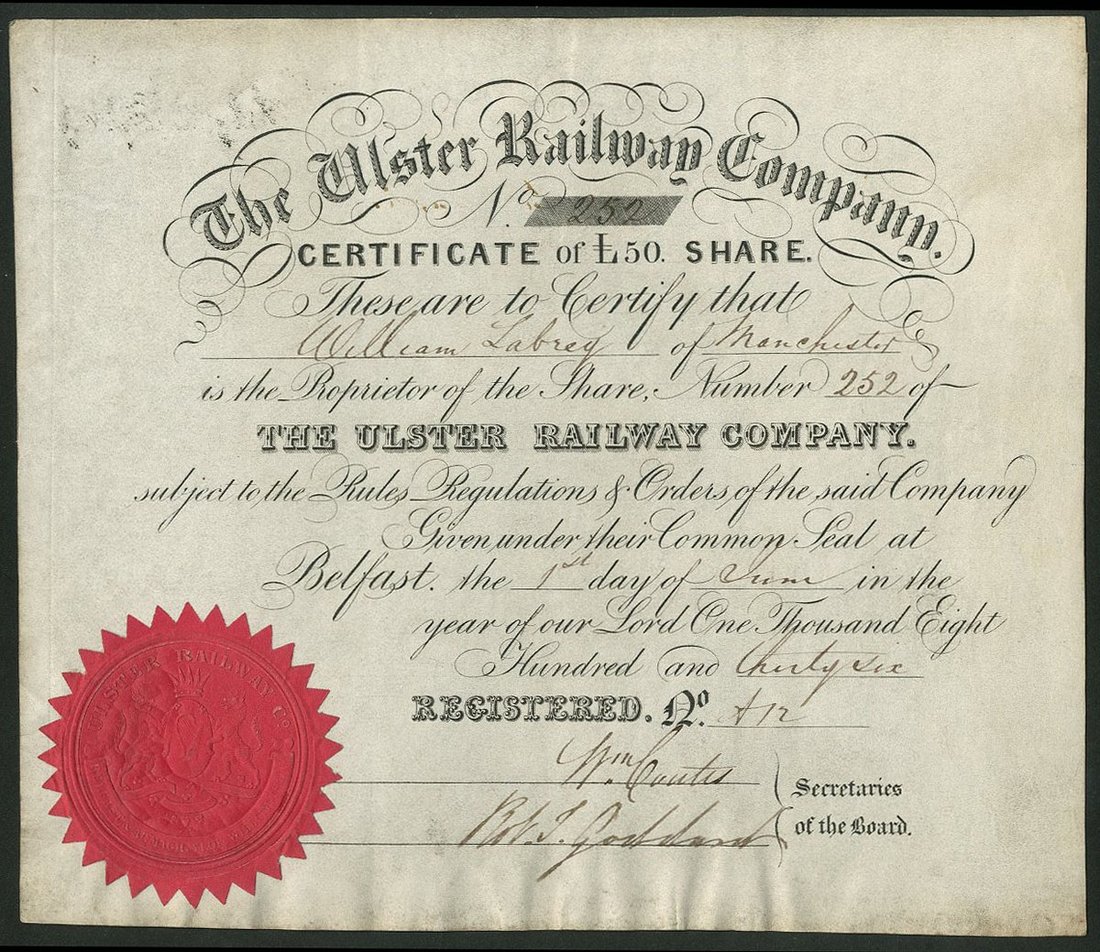 The Ulster Railway Company.
No. 252
CERTIFICATE of £50. SHARE.
These are to Certify that
William Labrey of Manchester
is the Proprietor of the Share, Number 252 of
THE ULSTER RAILWAY COMPANY.
subject to the Rules Regulations & Orders of the said Company
Given under their Common Seal at
Belfast. the 1st day of June in the
year of our Lord One Thousand Eight
Hundred and thirty six
REGISTERED. No. A12
Wm Coates
Secretaries
Robt. T. Goddard
of the Board.
ULSTER RAILWAY Co.